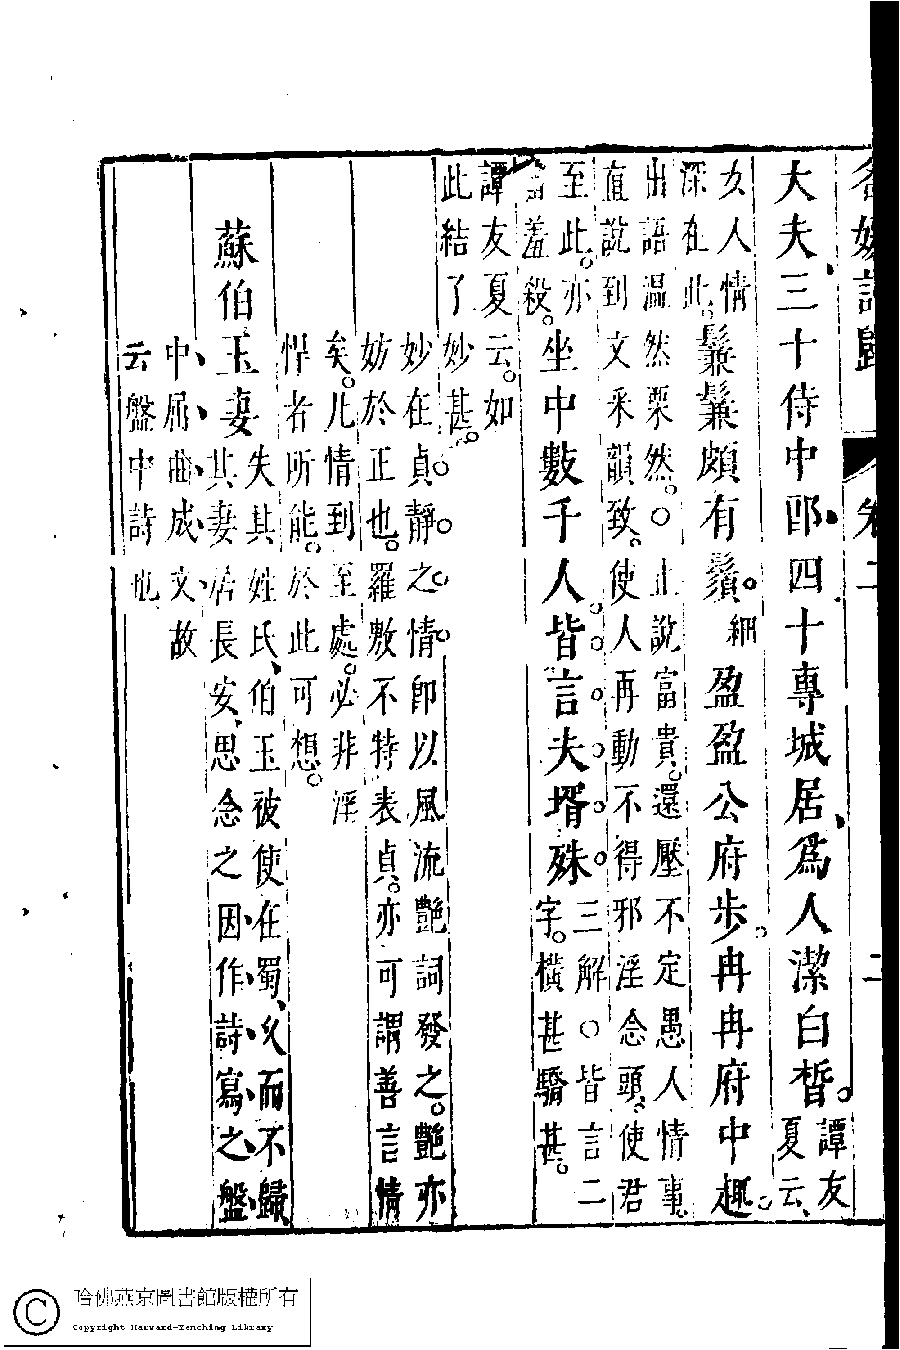 名媛詩歸 卷二 二
大夫三十侍中郎四十專城居爲人潔白晳。譚友
夏云、
女人情
深在此。鬑鬑頗有鬚。細 盈盈公府步。冉冉府中趨。
出語溫然栗然。○止說富貴。還壓不定愚人情事。
直說到文采韻致。使人再動不得邪淫念頭、使君
至此。亦
當羞殺。坐中數千人。皆言夫壻殊。三解○皆言二
字。橫甚驕甚。
譚友夏云。如
此結了妙甚。
妙在貞靜之情。卽以風流艷詞發之。艷亦
妨於正也。羅敷不特表貞。亦可謂善言情
矣。凡情到至處。必非淫
悍者所能。於此可想。
蘇伯玉妻 失其姓氏、伯玉被使在蜀、久而不歸、
其妻居長安、思念之因作詩寫之盤
中屈曲成文故
云盤中詩也
哈佛燕京圖書館版權所有
Copyright Harvard-Yenching Library